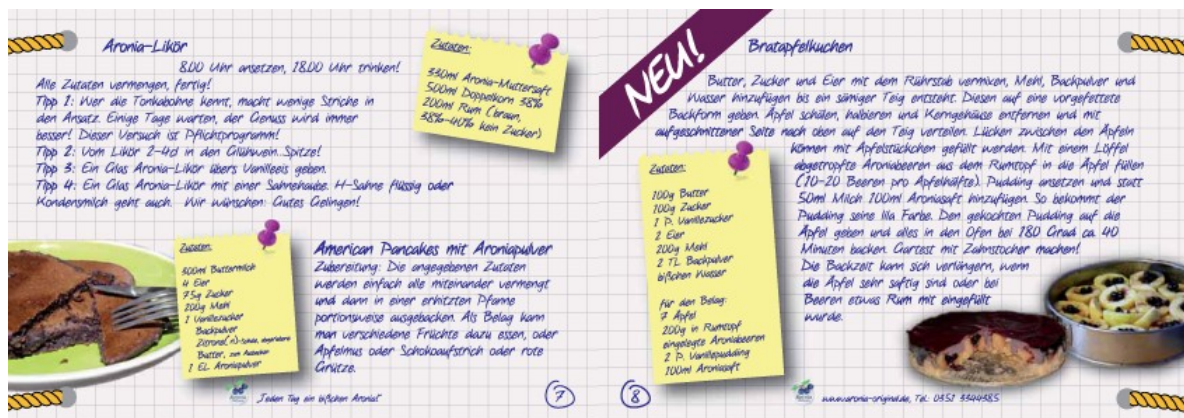 Aronia-Likör
8.00 Uhr ansetzen, 18.00 Uhr trinken!
Alle Zutaten vermengen, fertig!
Tipp 1: Wer die Tonkabohne kennt, macht wenige Striche in
den Ansatz. Einige Tage warten, der Genuss wird immer
besser! Dieser Versuch ist Pflichtprogramm!
Tipp 2: Vom Likör 2-4cl in den Glühwein. Spitze!
Tipp 3: Ein Glas Aronia-Likör übers Vanilleeis geben.
Tipp 4: Ein Glas Aronia-Likör mit einer Sahnehaube. H-Sahne flüssig oder
Kondensmilch geht auch. Wir wünschen: Gutes Gelingen!
Zutaten:
330ml Aronia-Muttersaft
500ml Doppelkorn 38%
200ml Rum (braun,
38%-40% kein Zucker)
Zutaten:
300ml Buttermilch
4 Eier
75g Zucker
200g Mehl
1 Vanillezucker
Backpulver
Zitrone(n)-schale, abgeriebene
Butter, zum Ausbacken
1 EL Aroniapulver
American Pancakes mit Aroniapulver
Zubereitung: Die angegebenen Zutaten
werden einfach alle miteinander vermengt
und dann in einer erhitzten Pfanne
portionsweise ausgebacken. Als Belag kann
man verschiedene Früchte dazu essen, oder
Apfelmus oder Schokoaufstrich oder rote
Grütze.
Jeden Tag ein bißchen Aronia!
7
NEU!
Bratapfelkuchen
Butter, Zucker und Eier mit dem Rührstab vermixen, Mehl, Backpulver und
Wasser hinzufügen bis ein sämiger Teig entsteht. Diesen auf eine vorgefettete
Backform geben. Äpfel schälen, halbieren und Kerngehäuse entfernen und mit
aufgeschnittener Seite nach oben auf den Teig verteilen. Lücken zwischen den Äpfeln
können mit Apfelstückchen gefüllt werden. Mit einem Löffel
abgetropfte Aroniabeeren aus dem Rumtopf in die Äpfel füllen
(10-20 Beeren pro Apfelhälfte). Pudding ansetzen und statt
50ml Milch 100ml Aroniasaft hinzufügen. So bekommt der
Pudding seine lila Farbe. Den gekochten Pudding auf die
Äpfel geben und alles in den Ofen bei 180 Grad ca. 40
Minuten backen. Gartest mit Zahnstocher machen!
Die Backzeit kann sich verlängern, wenn
die Äpfel sehr saftig sind oder bei
Beeren etwas Rum mit eingefüllt
wurde.
Zutaten:
100g Butter
100g Zucker
1 P. Vanillezucker
2 Eier
200g Mehl
2 TL Backpulver
bißchen Wasser
für den Belag:
7 Äpfel
200g in Rumtopf
eingelegte Aroniabeeren
2 P. Vanillepudding
100ml Aroniasaft
8
www.aronia-original.de, Tel.: 0351 3344385